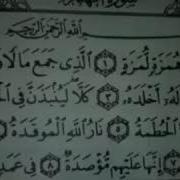 سورة
بِسْمِ اللَّهِ الرَّحْمَٰنِ الرَّحِيمِ
هُمَزَةٍ لُّمَزَةٍ ١ الَّذِي جَمَعَ مَالًا
لَهُ أَخْلَدَهُ ٣ كَلَّا لَيُنبَذَنَّ فِي
الْحُطَمَةُ ٥ نَارُ اللَّهِ الْمُوقَدَةُ ٦
إِنَّهَا عَلَيْهِم مُّؤْصَدَةٌ ٨ فِي عَمَدٍ